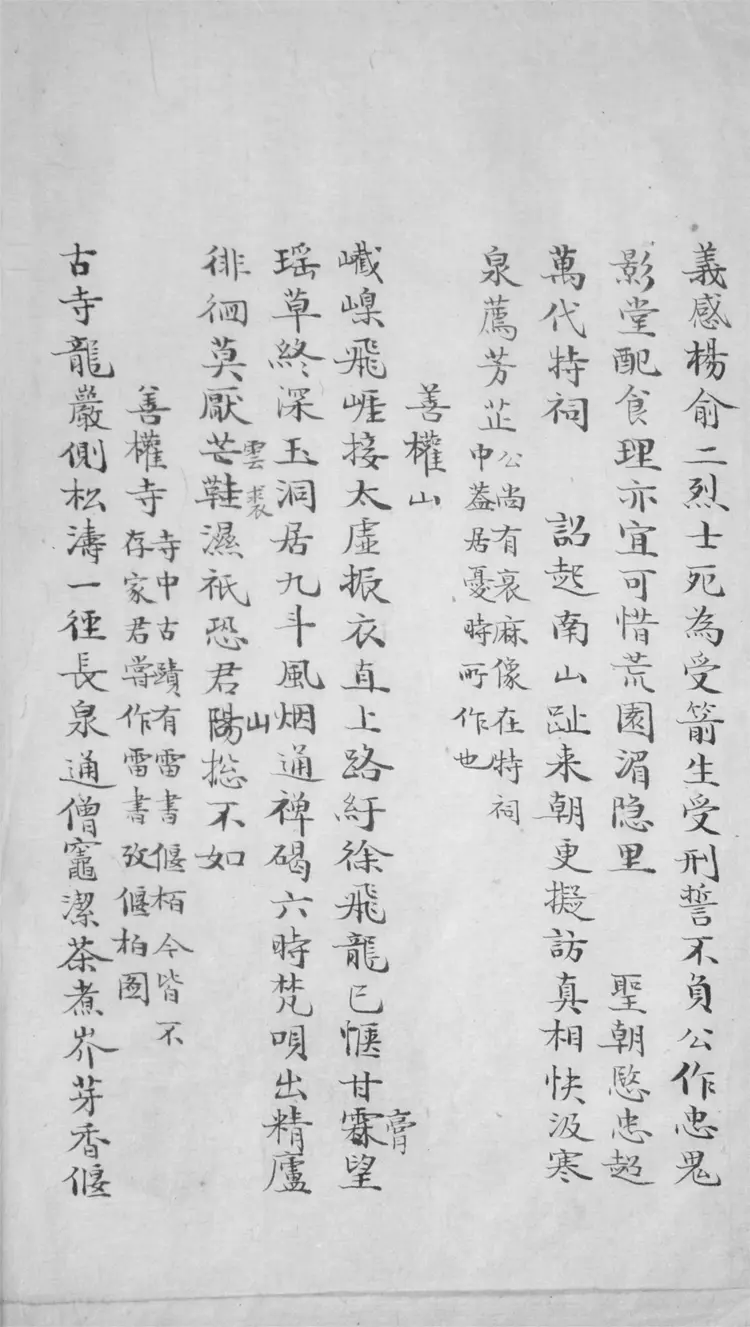 義感楊俞二烈士死為受箭生受刑誓不負公作忠鬼
影堂配食理亦宜可惜荒園湄隐里 聖朝愍忠超
萬代特祠 詔起南山趾来朝更擬訪真相快汲寒
泉薦芳芷公尚有衰麻像在特祠
中葢居憂時所作也
善權山
巇嵲飛崕接太虛振衣直上路紆徐飛龍已愜甘霖望
膏
瑶草終深玉洞居九斗風烟通禅碣六時梵唄出精廬
雲裘
徘徊莫厭芒鞋濕祇恐君陽揔不如
山
善權寺寺中古蹟有雷書偃栢今皆不
存家君嘗作雷書攷偃柏圖
古寺龍巖側松濤一徑長泉通僧竈潔茶煮岕芽香偃